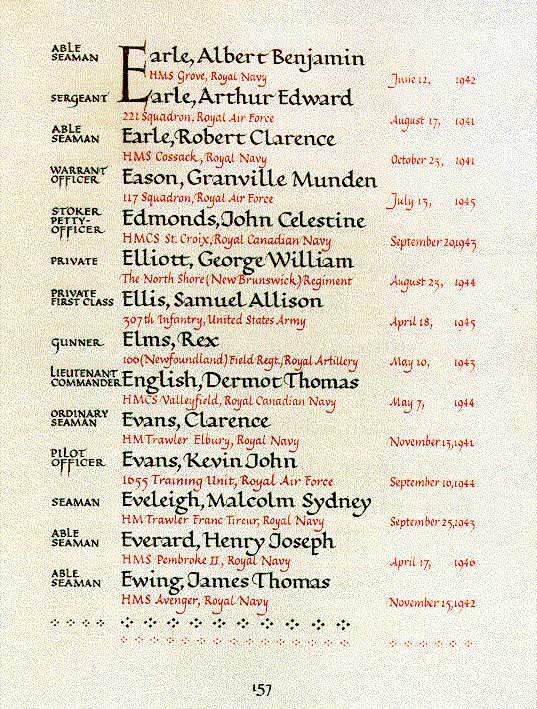 ABLE SEAMAN Earle, Albert Benjamin
HMS Grove, Royal Navy June 12, 1942
SERGEANT Earle, Arthur Edward
221 Squadron, Royal Air Force August 17, 1941
ABLE SEAMAN Earle, Robert Clarence
HMS Cossack, Royal Navy October 23, 1941
WARRANT OFFICER Eason, Granville Munden
117 Squadron, Royal Air Force July 13, 1945
STOKER PETTY-OFFICER Edmonds, John Celestine
HMCS St. Croix, Royal Canadian Navy September 20, 1943
PRIVATE Elliott, George William
The North Shore (New Brunswick) Regiment August 23, 1944
PRIVATE FIRST CLASS Ellis, Samuel Allison
307th Infantry, United States Army April 18, 1945
GUNNER Elms, Rex
166 (Newfoundland) Field Regt., Royal Artillery May 10, 1943
LIEUTENANT COMMANDER English, Dermot Thomas
HMCS Valleyfield, Royal Canadian Navy May 7, 1944
ORDINARY SEAMAN Evans, Clarence
HM Trawler Elbury, Royal Navy November 13, 1941
PILOT OFFICER Evans, Kevin John
1655 Training Unit, Royal Air Force September 10, 1944
SEAMAN Eveleigh, Malcolm Sydney
HM Trawler Franc Tireur, Royal Navy September 25, 1943
ABLE SEAMAN Everard, Henry Joseph
HMS Pembroke II, Royal Navy April 17, 1946
ABLE SEAMAN Ewing, James Thomas
HMS Avenger, Royal Navy November 15, 1942
157